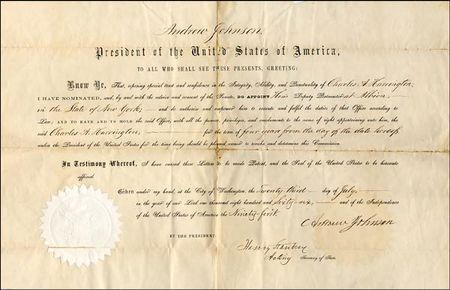 Andrew Johnson,
President of the United States of America,
TO ALL WHO SHALL SEE THESE PRESENTS, GREETING:
Know Ye, That, reposing special trust and confidence in the Integrity, Ability, and Punctuality of Charles A. Harrington,
I HAVE NOMINATED, and, by and with the advice and consent of the Senate, DO APPOINT Him Deputy Postmaster at Albion,
in the State of New York, and do authorize and empower him to execute and fulfil the duties of that Office according to
Law; AND TO HAVE AND TO HOLD the said Office, with all the powers, privileges, and emoluments to the same of right appertaining unto him, the
said Charles A. Harrington, for the term of four years from the day of the date hereof,
unless the President of the United States for the time being should be pleased sooner to revoke and determine this Commission.
In Testimony Whereof, I have caused these Letters to be made Patent, and the Seal of the United States to be hereunto
affixed.
Given under my hand, at the City of Washington, the Twenty third day of July,
in the year of our Lord one thousand eight hundred and Sixty-six, and of the Independence
of the United States of America the Ninety-first.
Andrew Johnson
BY THE PRESIDENT:
Henry Stanbery
Acting Secretary of State.